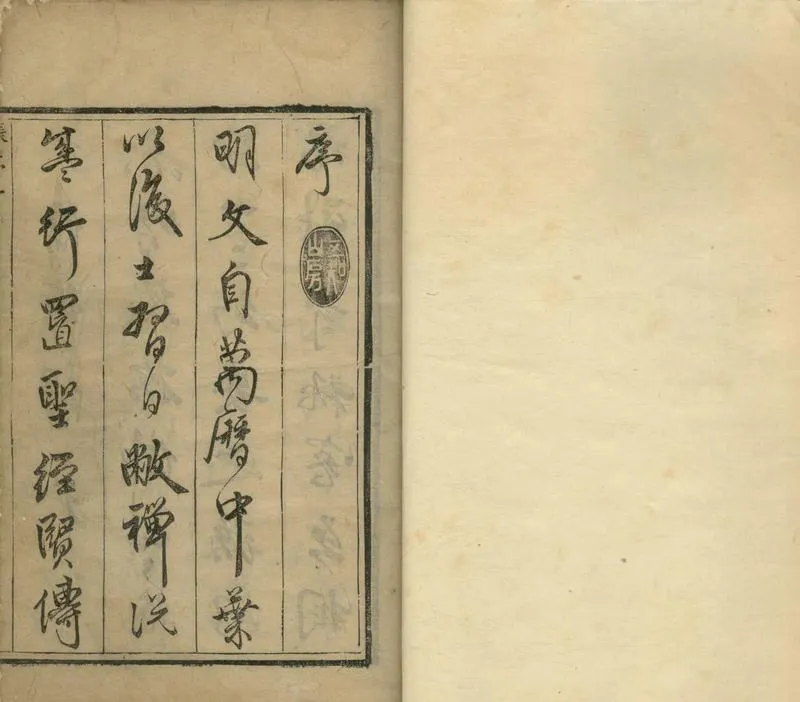 序
明文自萬曆中葉
以後士習日敝禪説
寒行置聖經賢傳